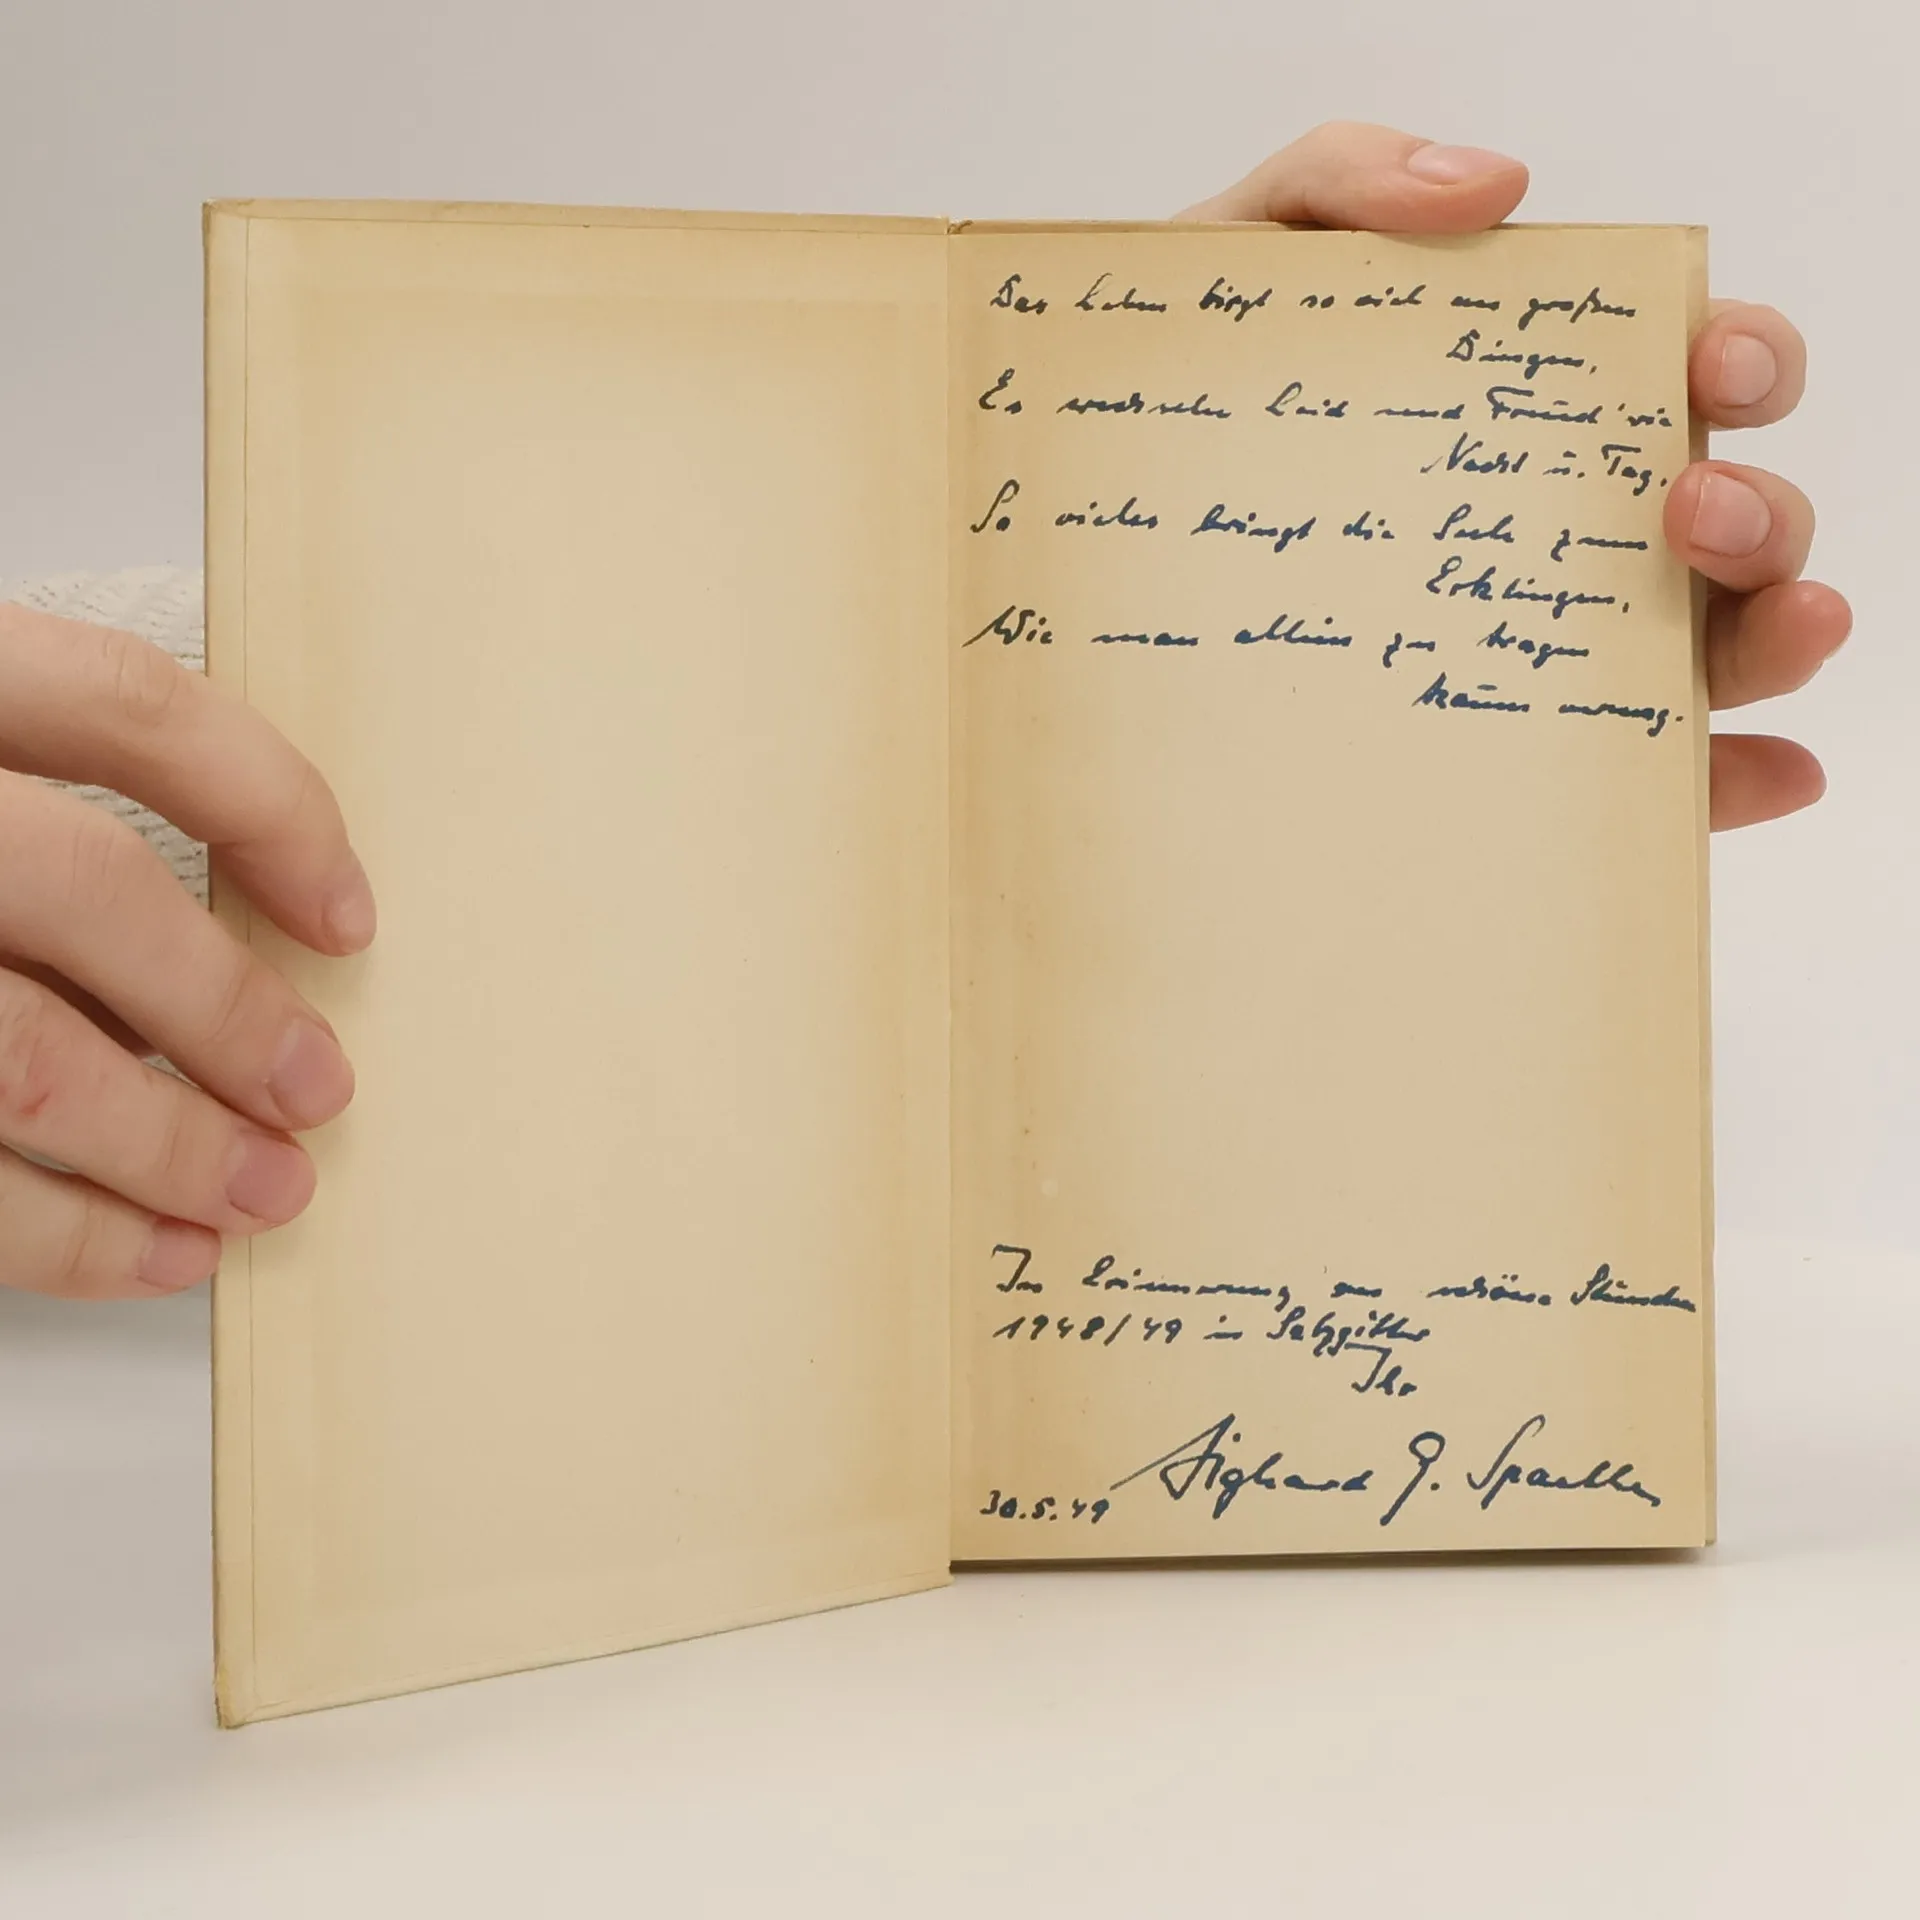 Das Leben birgt so viel an großen
Dingen,
Es wechseln Leid und Freud' wie
Nacht u. Tag.
So vieles bringt die Seele zum
Erklingen,
Wie man allein zu tragen
kaum vermag.
In Erinnerung an schöne Stunden
1948/49 in Salzgitter
Ihr
30.5.49 Sighard G.